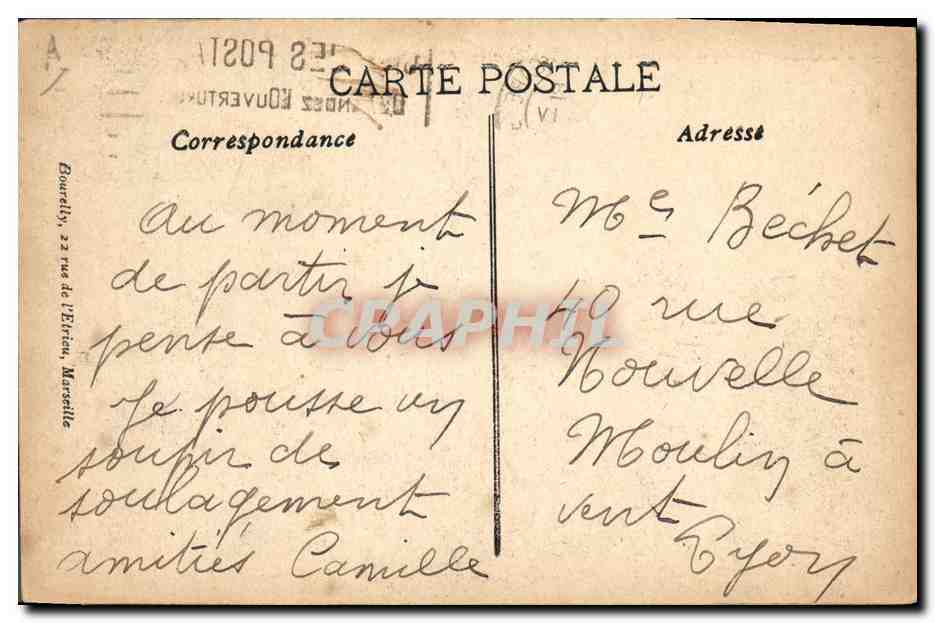 CARTE POSTALE
Correspondance
Adresse
Bourelly, 22 rue de l'Etrieu, Marseille
au moment
de partir je
pense à vous
Je pousse un
soupir de
soulagement
amitiés Camille
Me Béchet
40 rue
Nouvelle
Moulin à
vent
Lyon
CRAPHIL